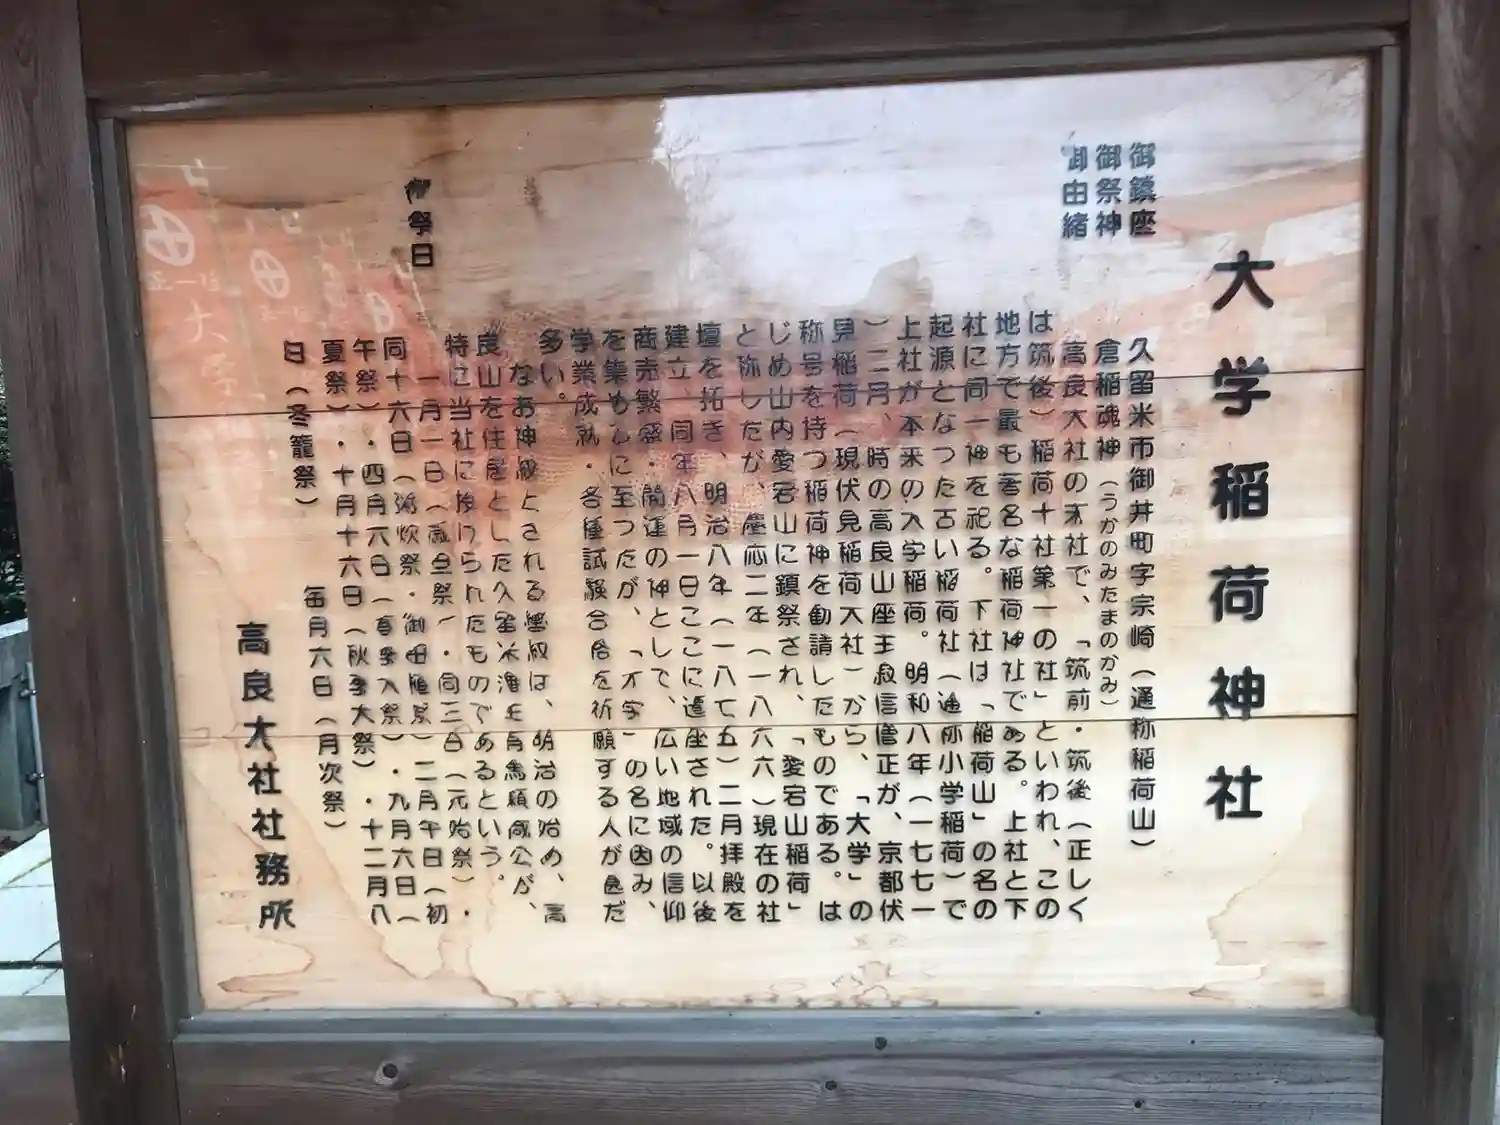 大学稲荷神社
御鎮座 久留米市御井町字宗崎(通称稲荷山)
御祭神 倉稲魂神(うかのみたまのかみ)
御由緒 高良大社の末社で、「筑前・筑後(正しく
は筑後)稲荷十社第一の社」といわれ、この
地方で最も著名な稲荷神社である。上社と下
社に同一神を祀る。下社は「稲荷山」の名の
起源となつた古い稲荷社(通称小学稲荷)で
上社が本来の大学稲荷。明和八年(一七七一
)二月、時の高良山座主寂信僧正が、京都伏
見稲荷(現伏見稲荷大社)から、「大学」の
称号を持つ稲荷神を勧請したものである。は
じめ山内愛宕山に鎮祭され、「愛宕山稲荷」
と称したが、慶応二年(一八六六)現在の社
壇を拓き、明治八年(一八七五)二月拝殿を
建立、同年八月一日ここに遷座された。以後
商売繁盛・開運の神として、広い地域の信仰
を集めるに至つたが、「大学」の名に因み、
学業成就・各種試験合格を祈願する人が甚だ
多い。
なお神号とされる は、明治の始め、高
良山を住居とした久留米 有馬頼咸公が、
特に当社に授けられたものであるという。
御祭日 一月一日(歳旦祭)・同三日(元始祭)・
同十六日(粥炊祭・御田植祭)二月午日(初
午祭)・四月六日(春季大祭)・九月六日(
夏祭)・十月十六日(秋季大祭)・十二月八
日(冬籠祭) 毎月六日(月次祭)
高良大社社務所